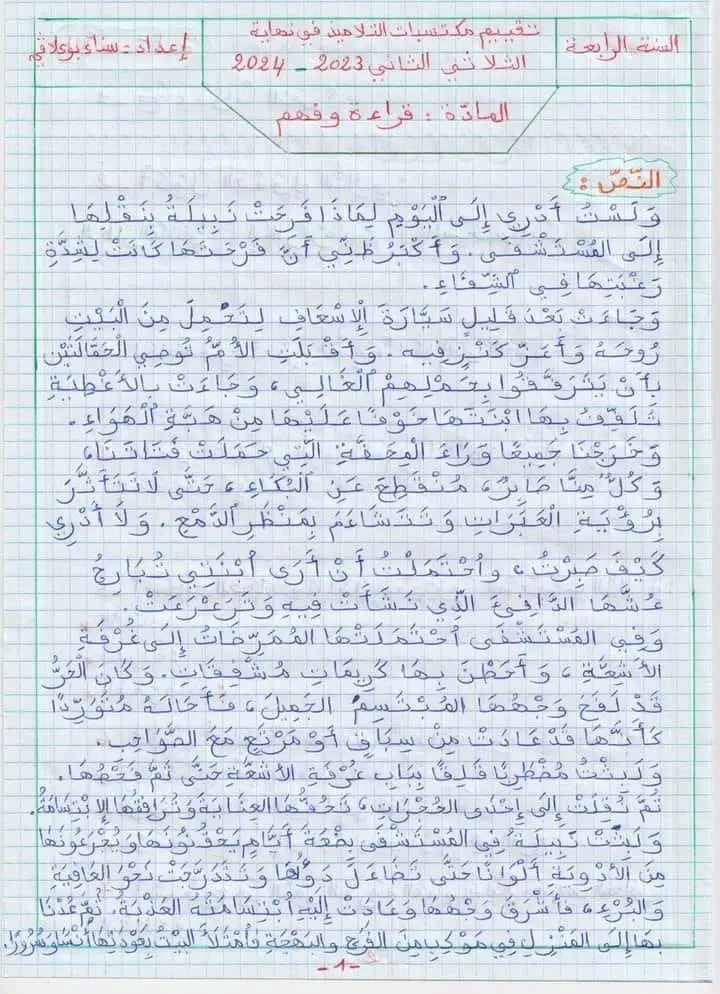 السنة الرابعة
تقييم مكتسبات التلاميذ في نهاية
الثلاثي الثاني 2023 - 2024
إعداد: سناء بوعلاقي
المادّة : قراءة وفهم
النّصّ :
وَلَسْتُ أَدْرِي إِلَى الْيَوْمِ لِمَاذَا فَرِحَتْ نَبِيلَةُ بِنَقْلِهَا
إِلَى المُسْتَشْفَى. وَأَكْبَرُ ظَنِّي أَنَّ فَرْحَتَهَا كَانَتْ لِشِدَّةِ
رَغْبَتِهَا فِي الشِّفَاءِ.
وَجَاءَتْ بَعْدَ قَلِيلٍ سَيَّارَةُ الْإِسْعَافِ لِتَحْمِلَ مِنَ الْبَيْتِ
رُوحَهُ وَأَعَزَّ كَنْزٍ فِيهِ. وَأَقْبَلَتِ الأُمُّ تُوصِي الْحَمَّالَيْنِ
بِأَنْ يَتَرَفَّقُوا بِحِمْلِهِمْ الْغَالِي، وَجَاءَتْ بِالأَغْطِيَةِ
تُلَفِّفُ بِهَا ابْنَتَهَا خَوْفًا عَلَيْهَا مِنْ هَبَّةِ الْهَوَاءِ.
وَخَرَجْنَا جَمِيعًا وَرَاءَ المِحَفَّةِ الَّتِي حَمَلَتْ فَتَاتَنَا،
وَكُلٌّ مِنَّا صَابِرٌ، مُنْقَطِعٌ عَنِ الْبُكَاءِ، حَتَّى لَا نَتَأَثَّرَ
بِرُؤْيَةِ الْعَبَرَاتِ وَنَتَشَاءَمَ بِمَنْظَرِ الدَّمْعِ. وَلَا أَدْرِي
كَيْفَ صَبَرْتُ، واُحْتَمَلْتُ أَنْ أَرَى اُبْنَتِي تُبَارِحُ
عُشَّهَا الدَّافِئَ الَّذِي نَشَأَتْ فِيهِ وَتَرَعْرَعَتْ.
وَفِي المُسْتَشْفَى اُحْتَمَلَتْهَا المُمَرِّضَاتُ إِلَى غُرْفَةِ
الأَشِعَّةِ، وَأَحَطْنَ بِهَا كَرِيمَاتٍ مُشْفِقَاتٍ. وَكَانَ الْحَرُّ
قَدْ لَفَحَ وَجْهَهَا المُبْتَسِمَ الجَمِيلَ، فَأَحَالَهُ مُتَوَرِّدًا
كَأَنَّهَا قَدْ عَادَتْ مِنْ سِبَاقٍ أَوْ مَرْتَعٍ مَعَ الصَّوَاحِبِ.
وَلَبِثْتُ مُضْطَرِبًا قَلِقًا بِبَابِ غُرْفَةِ الأَشِعَّةِ حَتَّى تَمَّ فَحْصُهَا.
ثُمَّ نُقِلَتْ إِلَى إِحْدَى الحُجُرَاتِ، تَحُفُّهَا العِنَايَةُ وَتُرَافِقُهَا الِابْتِسَامَةُ.
وَلَبِثَتْ نَبِيلَةُ فِي المُسْتَشْفَى بِضْعَةَ أَيَّامٍ يَحْقُنُونَهَا وَيُجَرِّعُونَهَا
مِنَ الأَدْوِيَةِ أَلْوَانًا حَتَّى تَضَاءَلَ دَاؤُهَا وَتَدَرَّجَتْ نَحْوَ العَافِيَةِ
وَالبُرْءِ، فَأَشْرَقَ وَجْهُهَا وَعَادَتْ إِلَيْهِ اُبْتِسَامَتُهُ العَذْبَةُ. ثُمَّ عُدْنَا
بِهَا إِلَى المَنْزِلِ فِي مَوْكِبٍ مِنَ الفَرَحِ والبَهْجَةِ فَامْتَلَأَ البَيْتُ بِعَوْدَتِهَا أُنْسًا وَسُرُورًا.
-1-